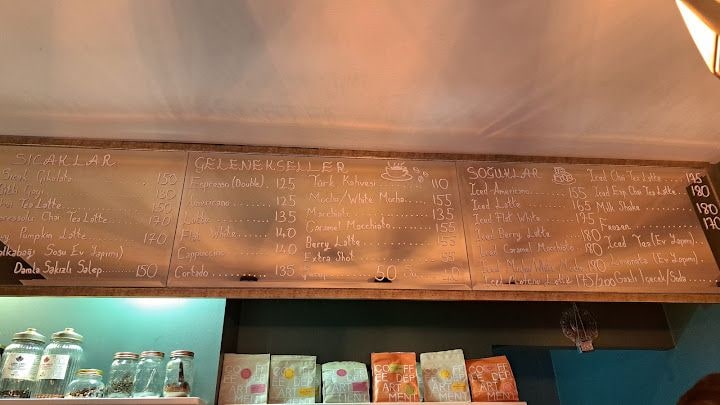 SICAKLAR
Sıcak Çikolata 150
150
Chai Tea Latte 150
Chai Tea Latte 170
Pumpkin Latte 170
Sosu Ev Yapımı)
Damla Sakızlı Salep 150
GELENEKSELLER
Espresso (Double) 125
Americano 125
Latte 135
Flat White 140
Cappuccino 140
Cortado 135
Türk Kahvesi 110
Mocha/White Mocha 155
Macchiato 135
Caramel Macchiato 155
Berry Latte 155
Extra Shot 55
50
SOĞUKLAR
Iced Americano 155
Iced Latte 165
Iced Flat White 175
Iced Berry Latte 180
Iced Caramel Macchiato 180
Iced White Mocha 180
Latte 175/200
Iced Chai Tea Latte 175
Iced Esp Chai Tea Latte 180
Milk Shake 180
Frozen 180
Iced Tea (Ev Yapımı) 170
Limonata (Ev Yapımı)
Gazlı İçecek/Soda
COFFEE DEPARTMENT
COFFEE DEPARTMENT
COFFEE DEPARTMENT
COFFEE DEPARTMENT
COFFEE DEPARTMENT
COFFEE DEPARTMENT